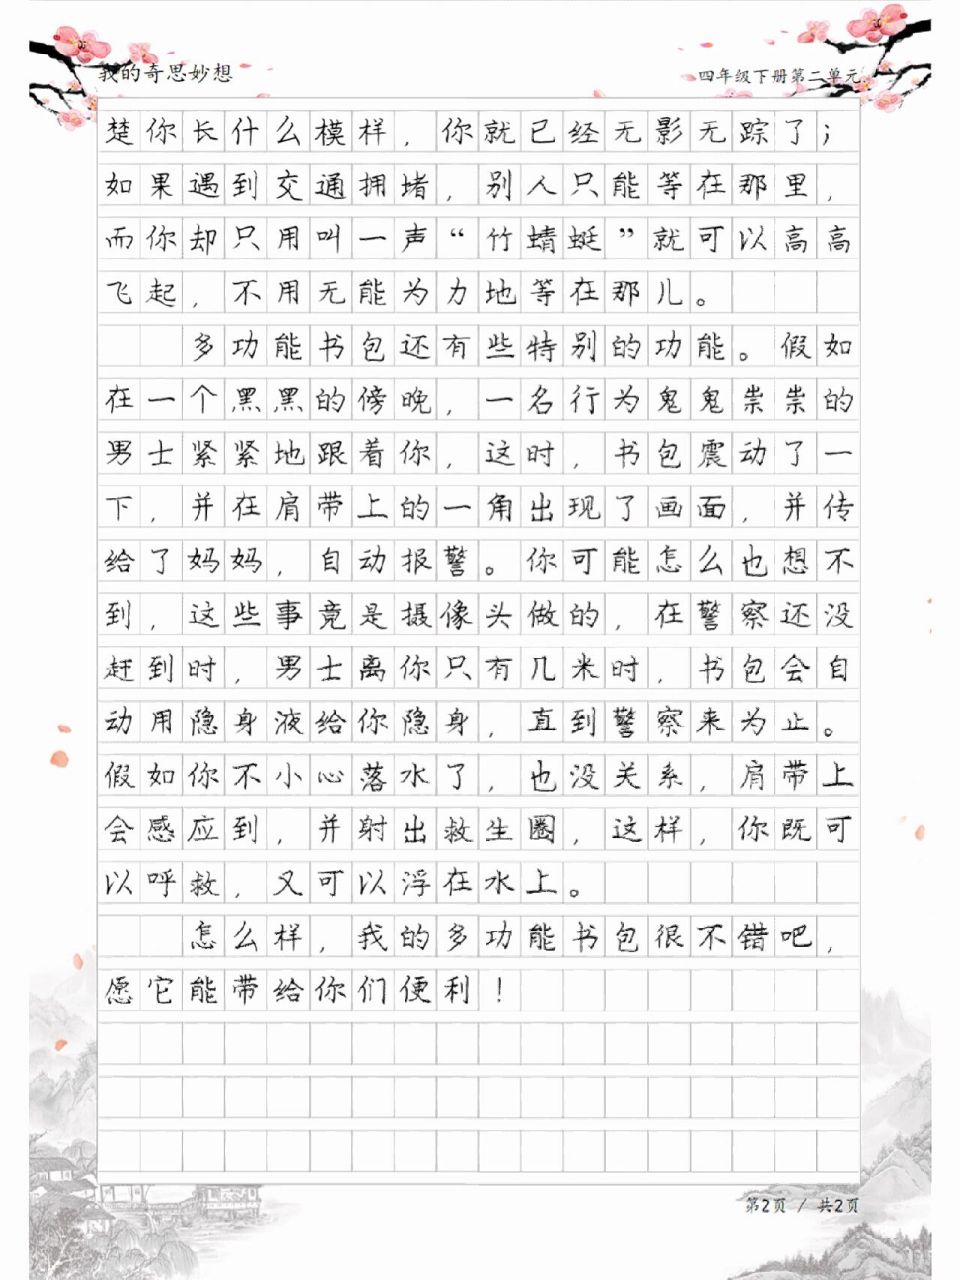 我的奇思妙想
四年级下册第二单元
楚你长什么模样，你就已经无影无踪了；
如果遇到交通拥堵，别人只能等在那里，
而你却只用叫一声“竹蜻蜓”就可以高高
飞起，不用无能为力地等在那儿。
多功能书包还有些特别的功能。假如
在一个黑黑的傍晚，一名行为鬼鬼祟祟的
男士紧紧地跟着你，这时，书包震动了一
下，并在肩带上的一角出现了画面，并传
给了妈妈，自动报警。你可能怎么也想不
到，这些事竟是摄像头做的，在警察还没
赶到时，男士离你只有几米时，书包会自
动用隐身液给你隐身，直到警察来为止。
假如你不小心落水了，也没关系，肩带上
会感应到，并射出救生圈，这样，你既可
以呼救，又可以浮在水上。
怎么样，我的多功能书包很不错吧，
愿它能带给你们便利！
第2页 / 共2页